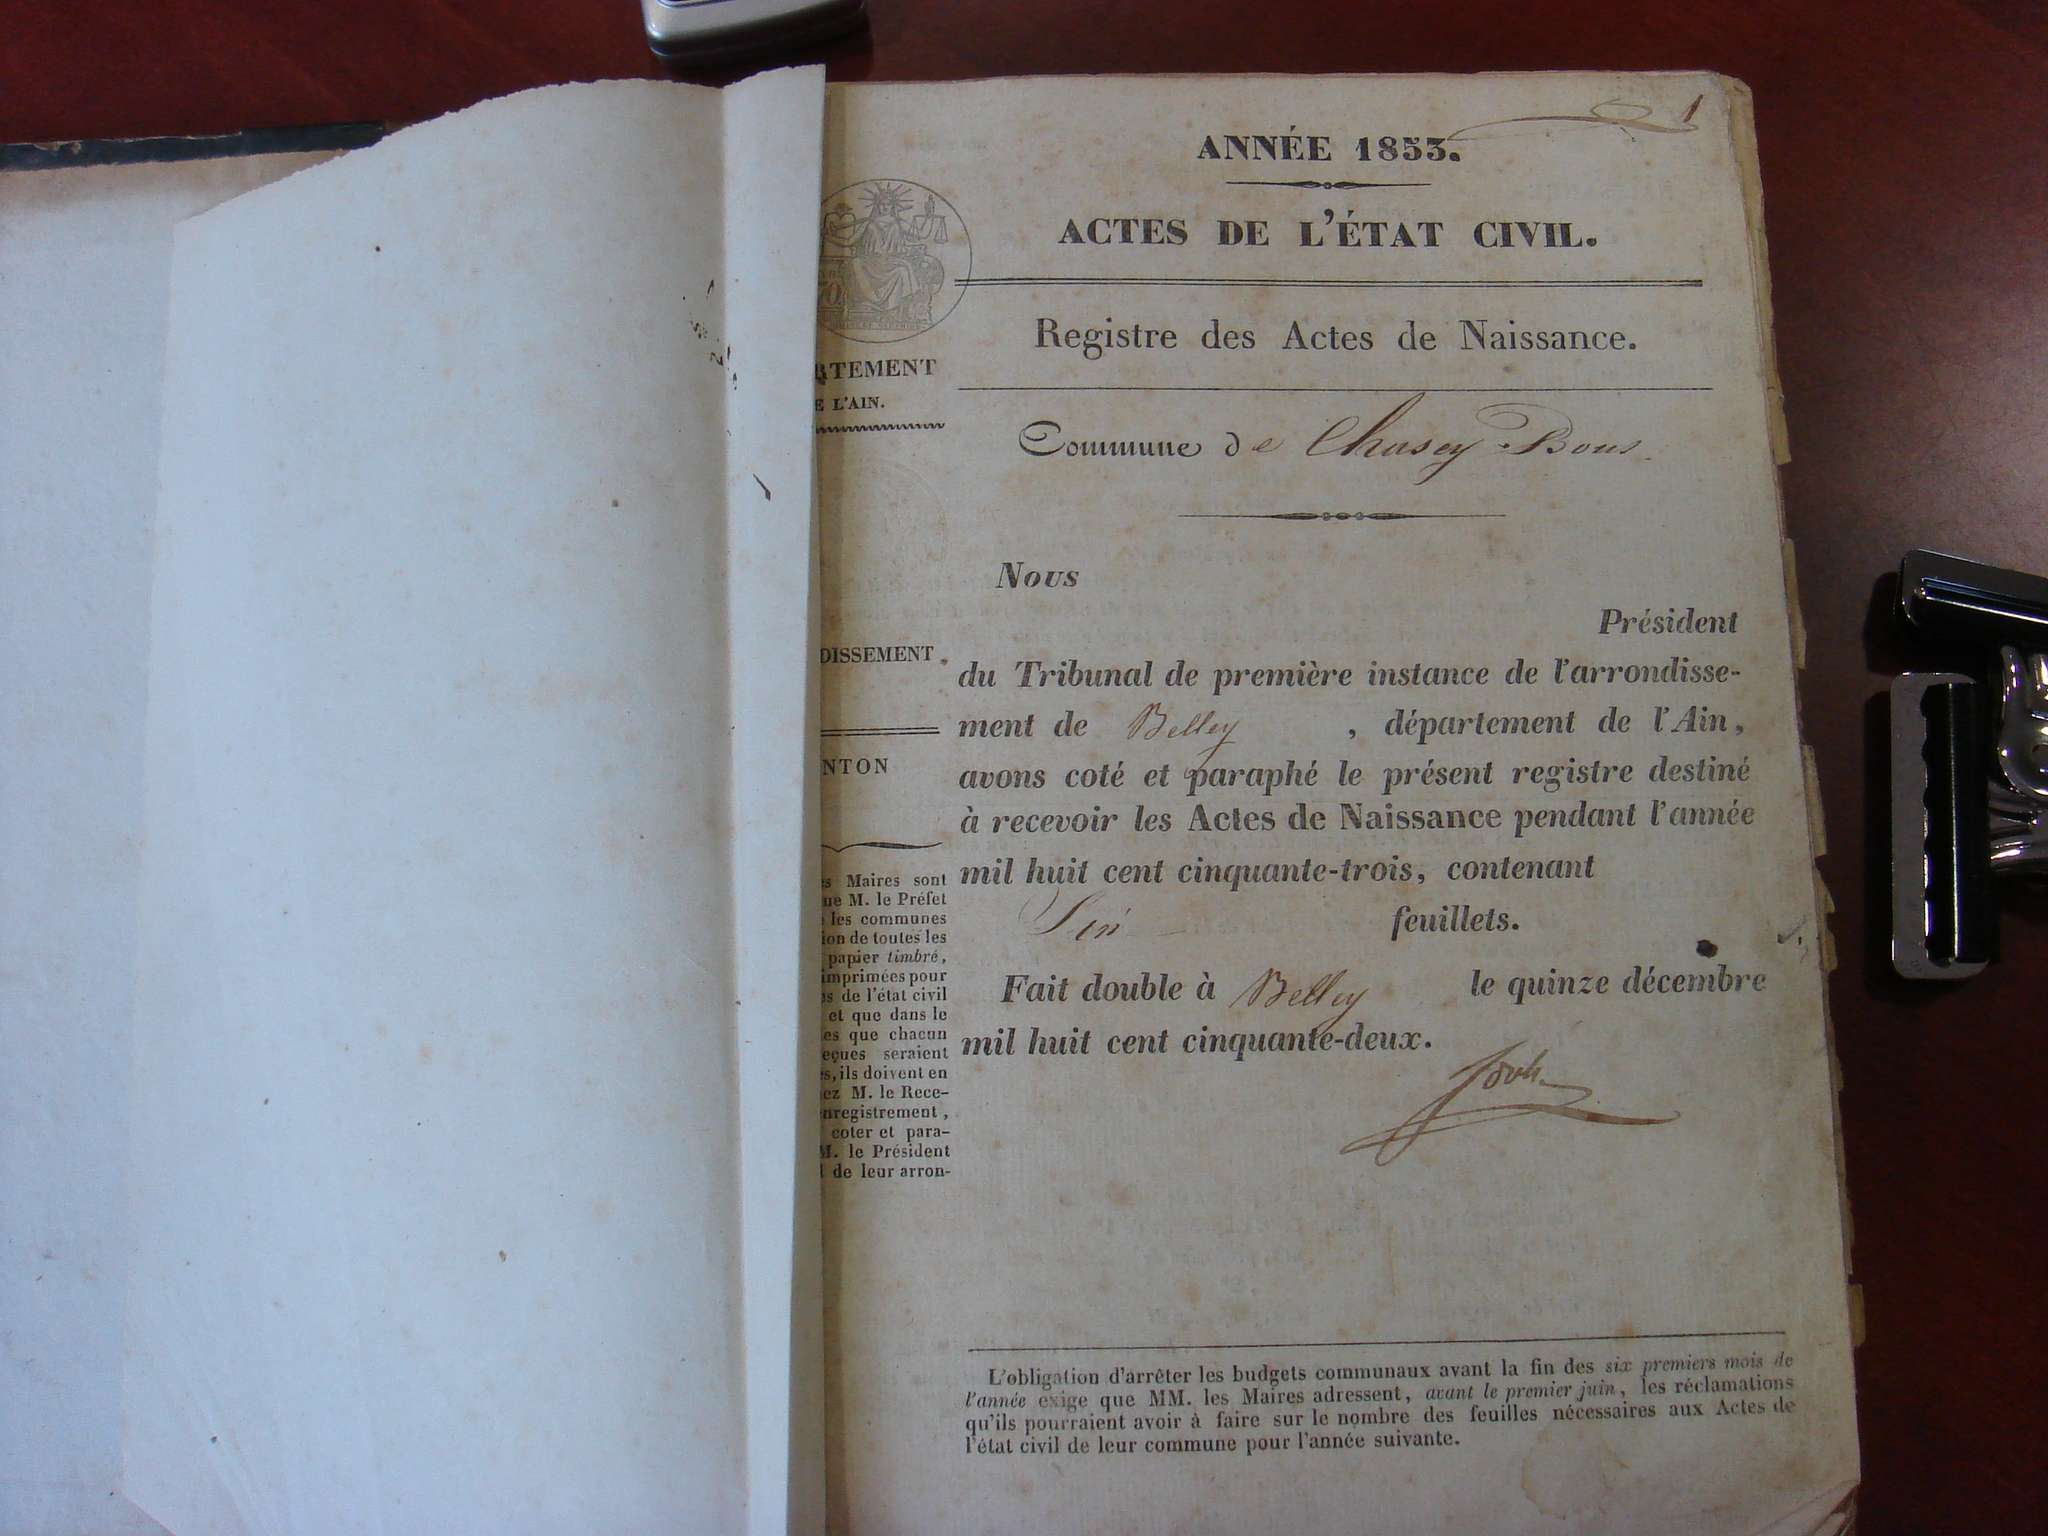 1
ANNÉE 1853.
ACTES DE L'ÉTAT CIVIL.
Registre des Actes de Naissance.
RTEMENT
E L'AIN.
Commune de Chasey Bons
Nous
Président
DISSEMENT
du Tribunal de première instance de l'arrondisse-
ment de Belley , département de l'Ain,
NTON
avons coté et paraphé le présent registre destiné
à recevoir les Actes de Naissance pendant l'année
mil huit cent cinquante-trois, contenant
feuillets.
Fait double à Belley le quinze décembre
mil huit cent cinquante-deux.
s Maires sont
ue M. le Préfet
les communes
ion de toutes les
papier timbré,
imprimées pour
s de l'état civil
et que dans le
es que chacun
eçues seraient
s, ils doivent en
ez M. le Rece-
nregistrement,
coter et para-
M. le Président
de leur arron-
L'obligation d'arrêter les budgets communaux avant la fin des six premiers mois de
l'année exige que MM. les Maires adressent, avant le premier juin, les réclamations
qu'ils pourraient avoir à faire sur le nombre des feuilles nécessaires aux Actes de
l'état civil de leur commune pour l'année suivante.